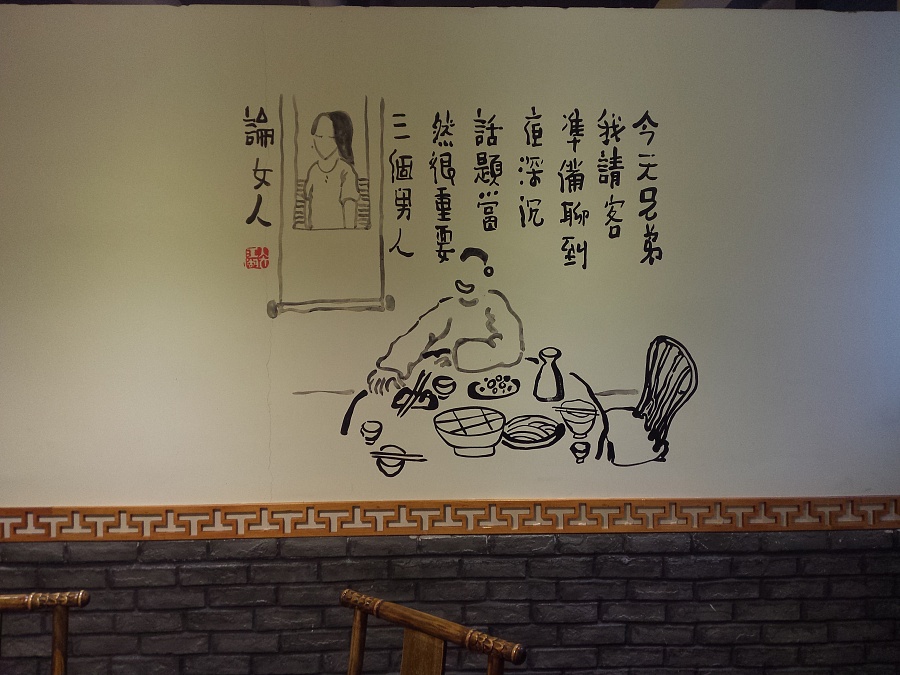 今天兄弟
我請客
準備聊到
夜深沉
話題當
然很重要
三個男人
論女人